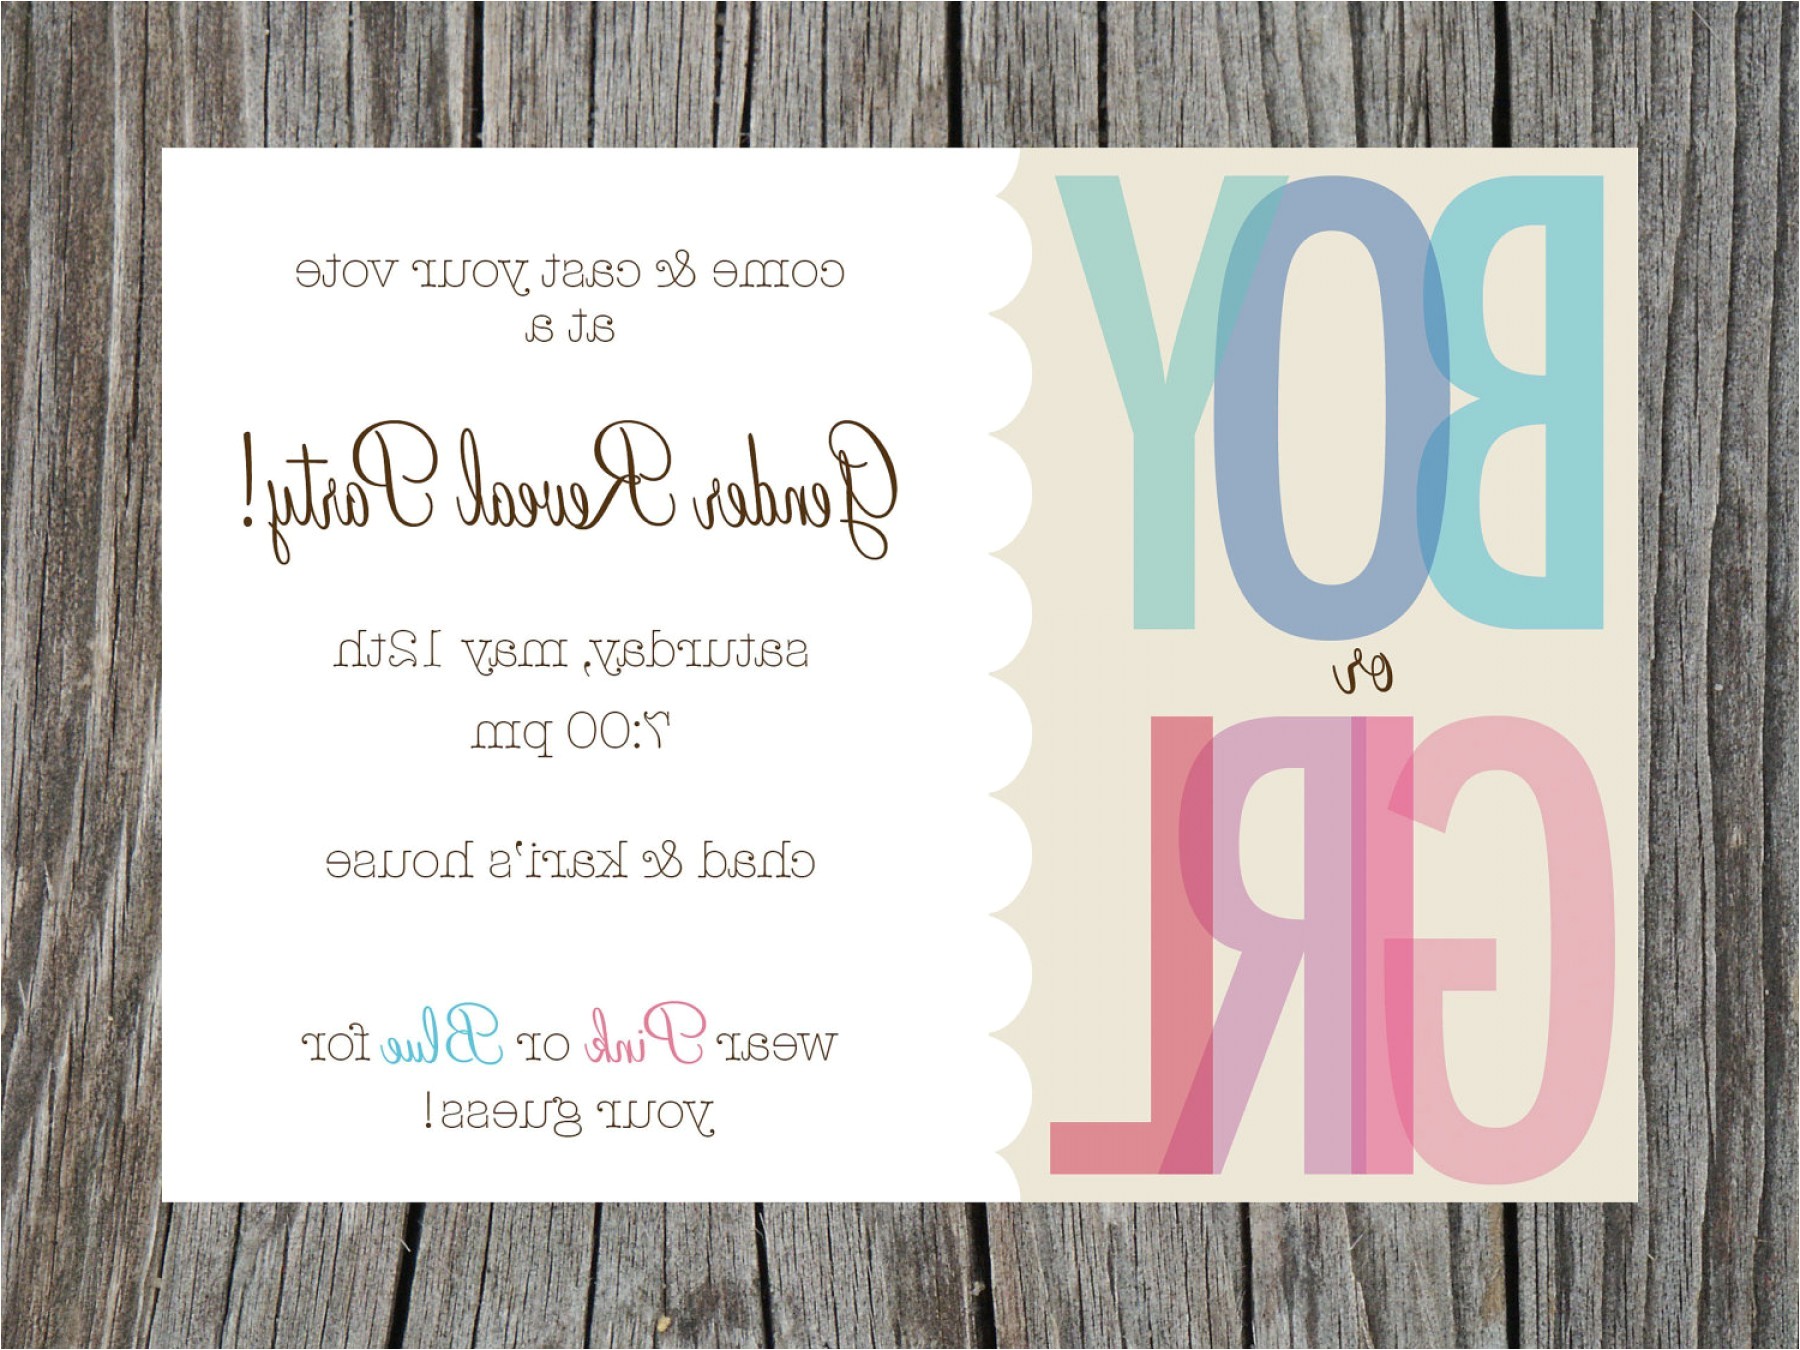 BOY
or
GIRL
come & cast your vote
at a
Gender Reveal Party!
saturday, may 12th
7:00 pm
chad & kari's house
wear Pink or Blue for
your guess!